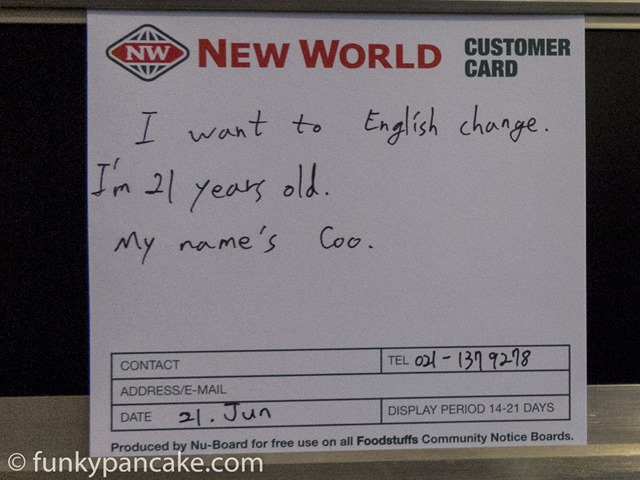 NW NEW WORLD CUSTOMER CARD
I want to English change.
I'm 21 years old.
My name's Coo.
CONTACT TEL 021-1379278
ADDRESS/E-MAIL
DATE 21. Jun DISPLAY PERIOD 14-21 DAYS
Produced by Nu-Board for free use on all Foodstuffs Community Notice Boards.
© funkypancake.com